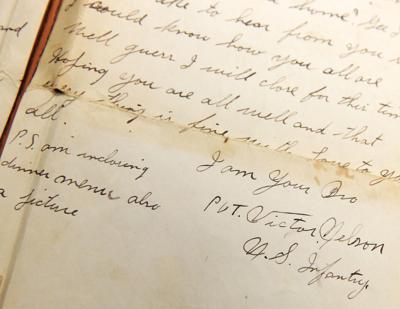 like to hear from you
I could know how you all are
and
Well guess I will close for this time
Hoping you are all well and that
thing is fine with love to you
all
I am Your Bro
P.S. am inclosing
dinner menu also
a picture
Pvt. Victor Nelson
U.S. Infantry.